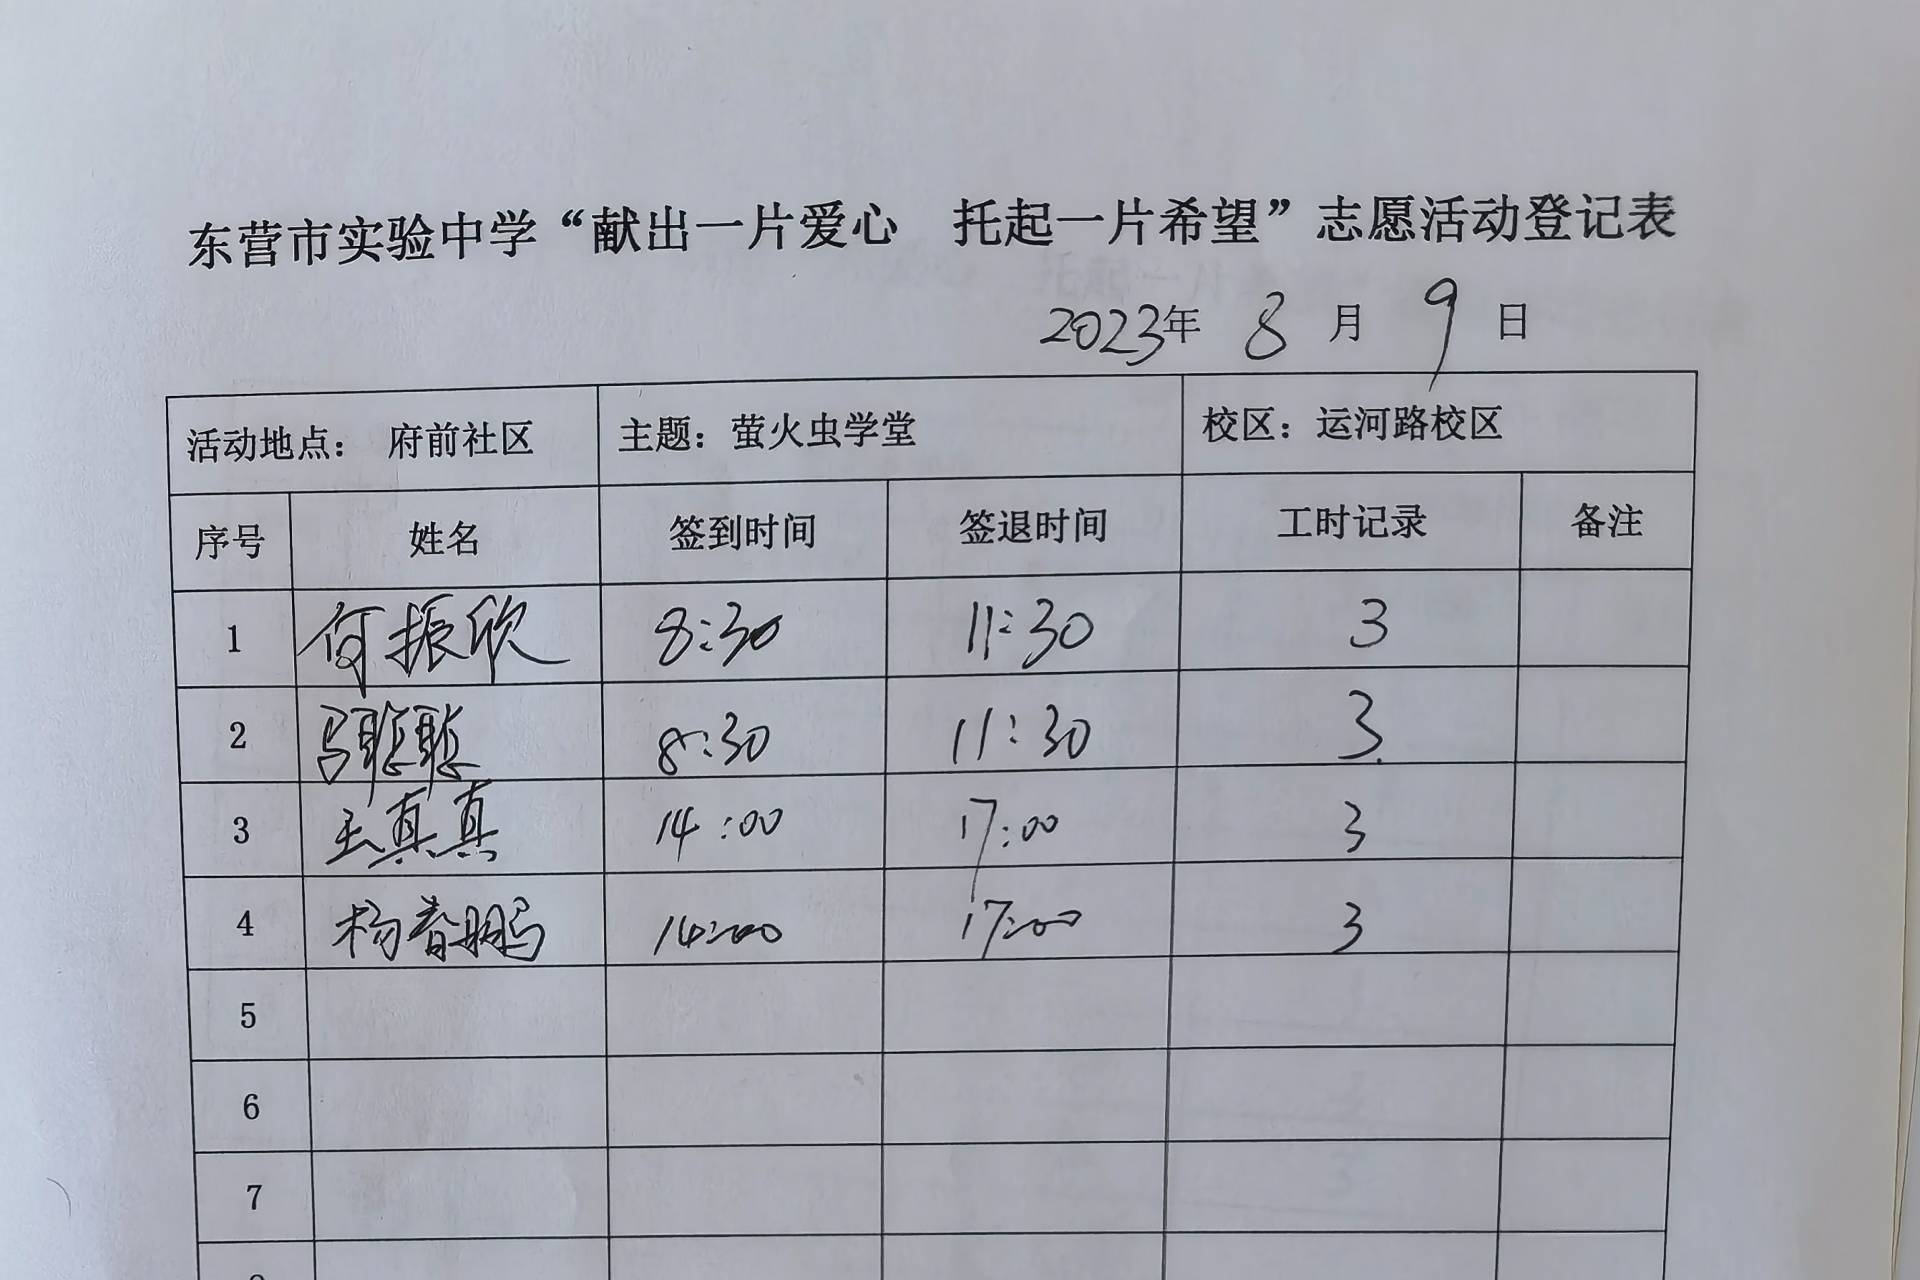 东营市实验中学“献出一片爱心 托起一片希望”志愿活动登记表
2023年 8 月 9 日
活动地点： 府前社区 主题：萤火虫学堂 校区：运河路校区
序号 姓名 签到时间 签退时间 工时记录 备注
1 何振欣 8:30 11:30 3
2 马聪聪 8:30 11:30 3
3 王真真 14:00 17:00 3
4 杨春鹏 14:00 17:00 3
5
6
7